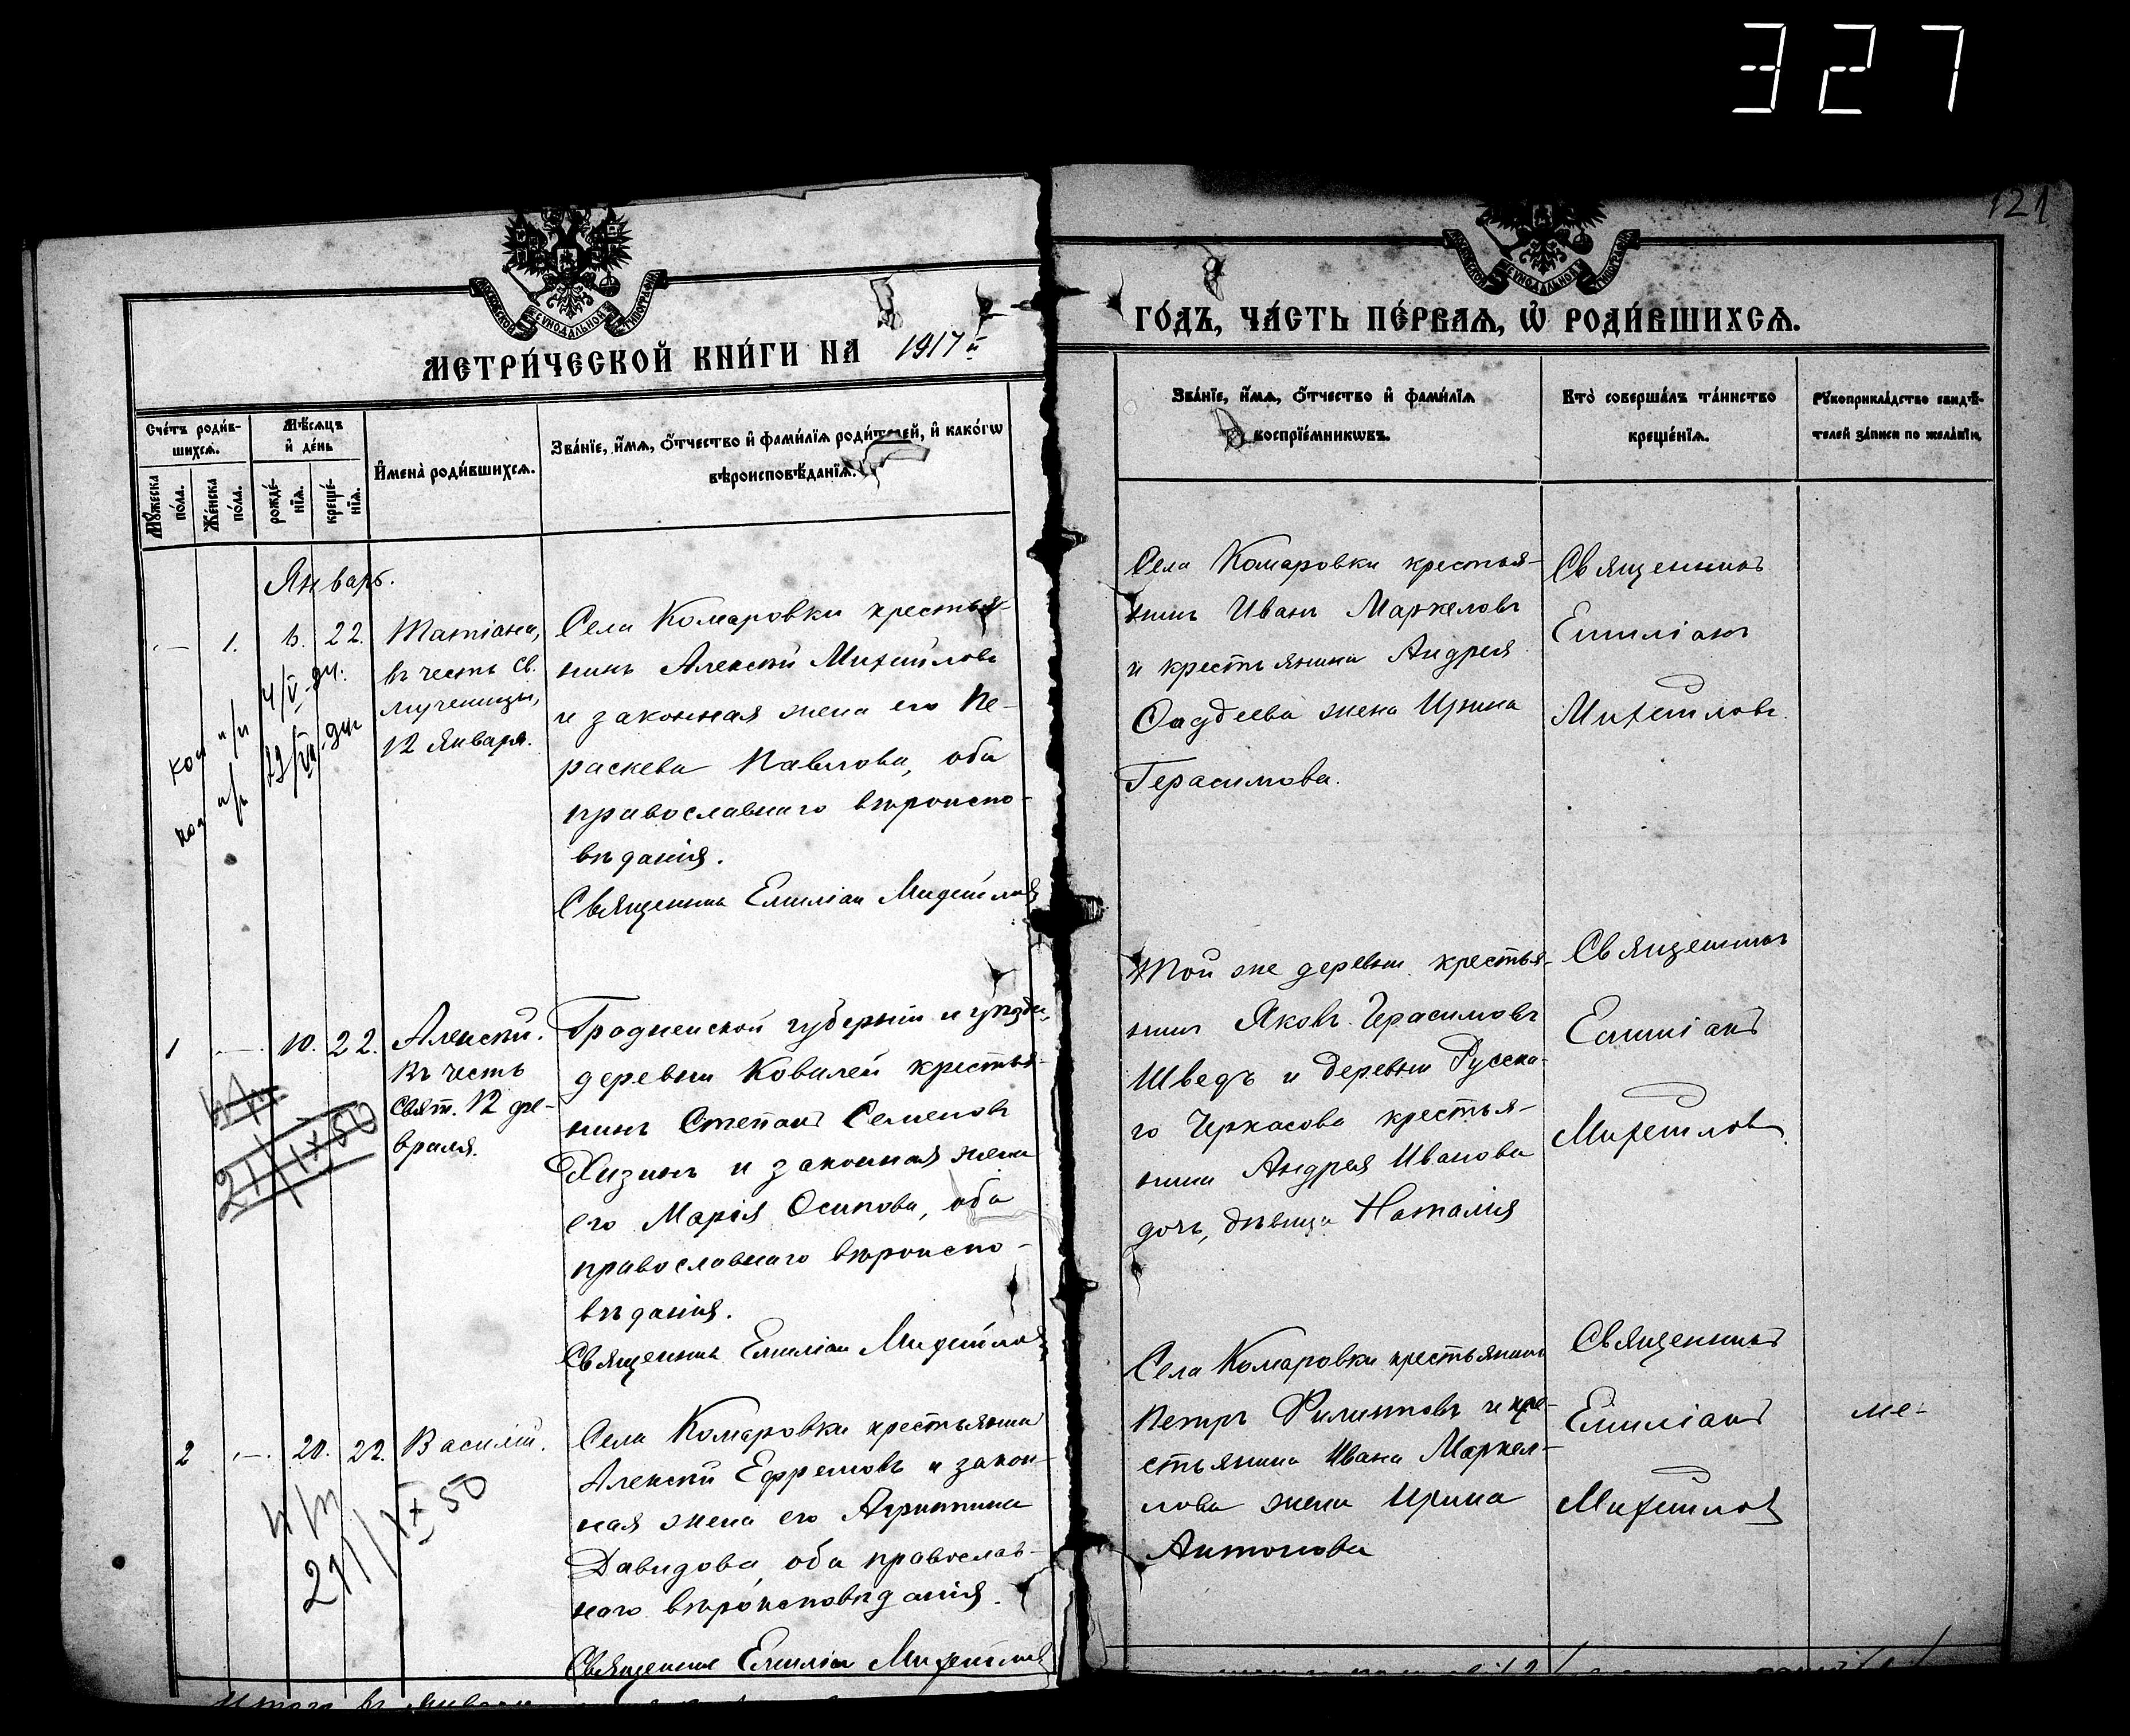 327
121
МОСКОВСКОЙ СѴНОДАЛЬНОЙ ТИПОГРАФІИ
МОСКОВСКОЙ СѴНОДАЛЬНОЙ ТИПОГРАФІИ
МЕТРИ́ЧЕСКОЙ КНИ́ГИ НА 1917й
ГО́ДЪ, ЧА́СТЬ ПЕ́РВАѦ, Ѡ҆ РОДИ́ВШИХСѦ.
Сче́тъ роди́в-
шихсѧ.
Мѣ́сѧцъ
и҆ де́нь
Мꙋ́жеска
по́ла.
Же́нска
по́ла.
рожде́-
нїѧ.
креще́-
нїѧ.
И҆мена̀ роди́вшихсѧ.
Зва́нїе, и҆́мѧ, ѻ҆́тчество и҆ фами́лїѧ роди́телей, и҆ како́гѡ
вѣроисповѣ́данїѧ.
Зва́нїе, и҆́мѧ, ѻ҆́тчество и҆ фами́лїѧ
воспрїе́мникѡвъ.
Кто̀ соверша́лъ та́инство
креще́нїѧ.
Рꙋкоприкла́дство свидѣ́-
телей за́писи по жела́нїю.
Январь.
— 1. 6. 22.
Татіана,
въ честь св.
мученицы,
12 января.
Села Комаровки крестья-
нинъ Алексѣй Михайловъ
и законная жена его Па-
раскева Павлова, оба
православнаго вѣроиспо-
вѣданія.
Священникъ Емиліан Михайлов
Села Комаровки крестья-
нинъ Иванъ Маркеловъ
и крестьянина Андрея
Фаддеева жена Ирина
Герасимова.
Священникъ
Емиліанъ
Михайловъ.
1 — 10. 22.
Алексѣй.
Въ честь
свят. 12 фе-
враля.
21/IX 50
Гродненской губерніи и уѣзда,
деревни Ковалей крестья-
нинъ Степанъ Семеновъ
Хизинъ и законная жена
его Марія Осипова, оба
православнаго вѣроиспо-
вѣданія.
Священникъ Емиліан Михайлов
Той же деревни крестья-
нинъ Яковъ Герасимовъ
Шведъ и деревни Русска-
го Черкасова крестья-
нина Андрея Иванова
дочь, дѣвица Наталія
Священникъ
Емиліанъ
Михайловъ.
2 — 20. 22.
Василій.
21/IX 50
Села Комаровки крестьянинъ
Алексѣй Ефремовъ и закон-
ная жена его Агриппина
Давидова, оба православ-
наго вѣроисповѣданія.
Священникъ Емиліан Михайлов
Села Комаровки крестьянинъ
Петръ Филипповъ и кре-
стьянина Ивана Маркел-
лова жена Ирина
Антонова
Священникъ
Емиліанъ
Михайлов
Итого въ Январѣ